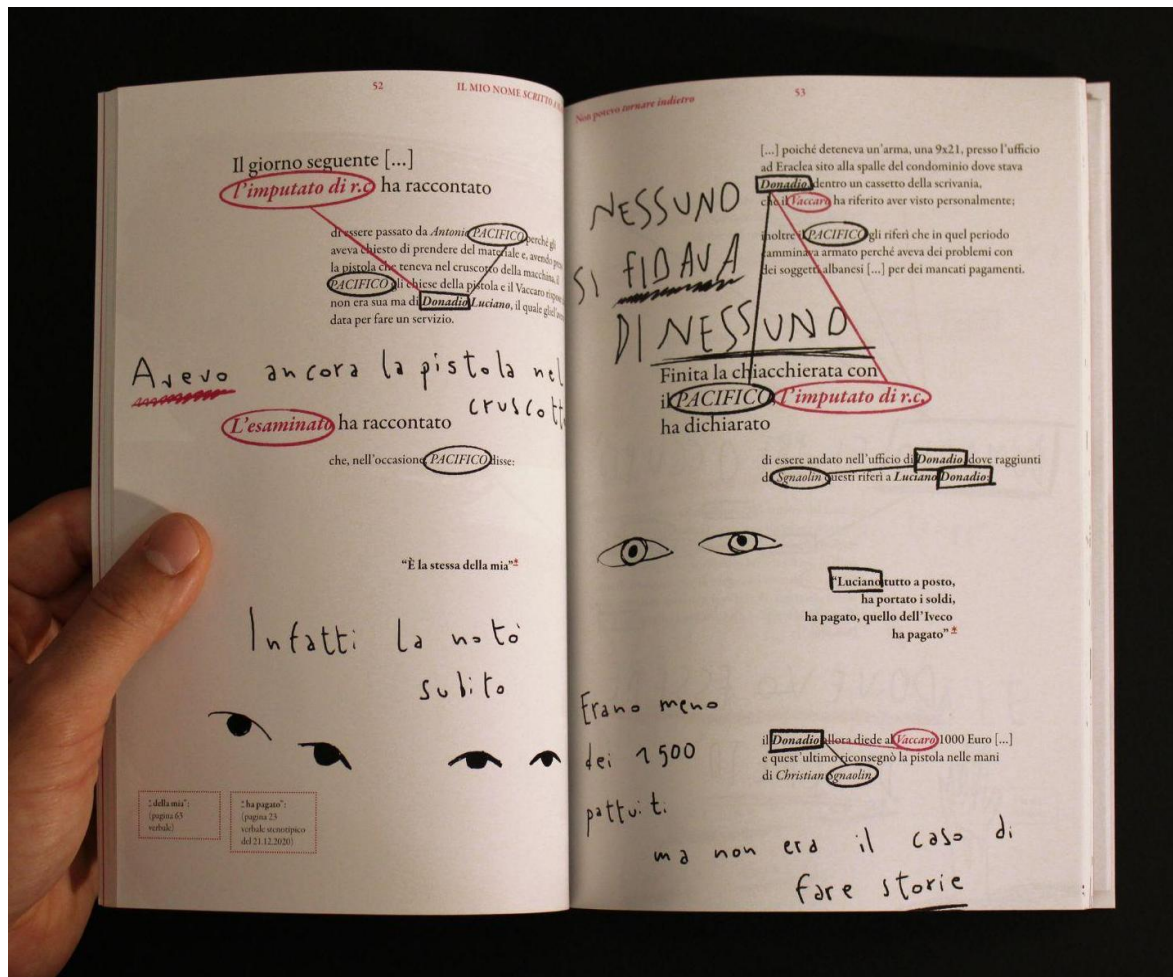 52
IL MIO NOME SCRITTO
Il giorno seguente [...]
l'imputato di r.c. ha raccontato
di essere passato da Antonio PACIFICO perché gli
aveva chiesto di prendere del materiale e, avendo
la pistola che teneva nel cruscotto della macchina, il
PACIFICO gli chiese della pistola e il Vaccaro rispose
non era sua ma di Donadio Luciano, il quale
data per fare un servizio.
Avevo ancora la pistola nel
cruscotto
L'esaminato ha raccontato
che, nell'occasione, PACIFICO disse:
"È la stessa della mia"*
Infatti la notò
subito
* della mia":
(pagina 63
verbale)
* ha pagato":
(pagina 23
verbale stenotipico
del 21.12.2020)
53
Non potevo tornare indietro
[...] poiché deteneva un'arma, una 9x21, presso l'ufficio
ad Eraclea sito alla spalle del condominio dove stava
Donadio, dentro un cassetto della scrivania,
che il Vaccaro ha riferito aver visto personalmente;
inoltre il PACIFICO gli riferì che in quel periodo
camminava armato perché aveva dei problemi con
dei soggetti albanesi [...] per dei mancati pagamenti.
NESSUNO
SI FIDAVA
DI NESSUNO
Finita la chiacchierata con
il PACIFICO, l'imputato di r.c.
ha dichiarato
di essere andato nell'ufficio di Donadio, dove raggiunti
da Sgnaolin questi riferì a Luciano Donadio:
"Luciano tutto a posto,
ha portato i soldi,
ha pagato, quello dell'Iveco
ha pagato"*
Erano meno
dei 1500
pattuiti
il Donadio allora diede al Vaccaro 1000 Euro [...]
e quest'ultimo riconsegnò la pistola nelle mani
di Christian Sgnaolin.
ma non era il caso di
fare storie